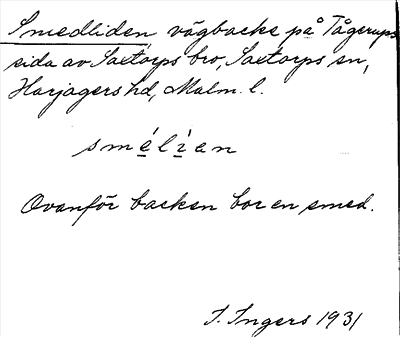 Smedliden vägbacke på Tågerups
sida av Saxtorps bro, Saxtorps sn,
Harjagers hd, Malm. l.
smélian
Ovanför backen bor en smed.
I. Ingers 1931